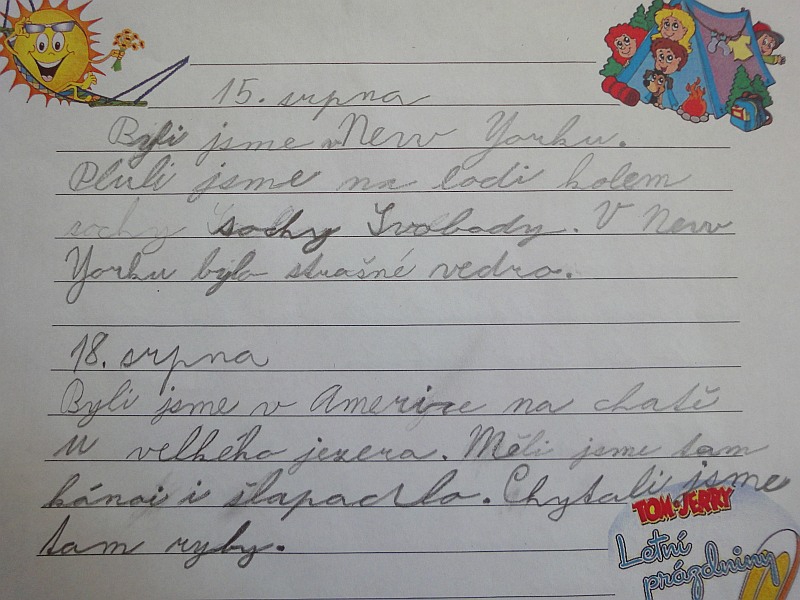 15. srpna
Byli jsme v New Yorku.
Pluli jsme na lodi kolem
sochy sochy Svobody. V New
Yorku bylo strašné vedro.
18. srpna
Byli jsme v Americe na chatě
u velkého jezera. Měli jsme tam
kánoi i šlapadlo. Chytali jsme
tam ryby.
TOM AND JERRY
Letní
prázdniny